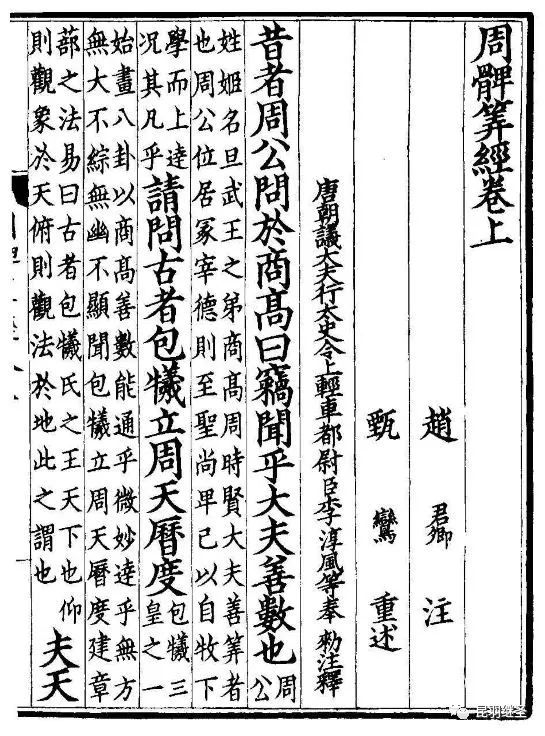 周髀筭經卷上
趙君卿注
甄鸞重述
唐朝議大夫行太史令上輕車都尉臣李淳風等奉勑注釋
昔者周公問於商高曰竊聞乎大夫善數也周公
姓姬名旦武王之弟商高周時賢大夫善筭者
也周公位居冢宰德則至聖尚卑己以自牧下
學而上達况其凡乎請問古者包犧立周天曆度包犧三皇之一
始畫八卦以商高善數能通乎微妙達乎無方
無大不綜無幽不顯聞包犧立周天曆度建章
蔀之法易曰古者包犧氏之王天下也仰
則觀象於天俯則觀法於地此之謂也夫天
昆羽继圣